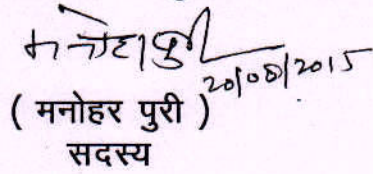 मनोहर पुरी
20/08/2015
( मनोहर पुरी )
सदस्य